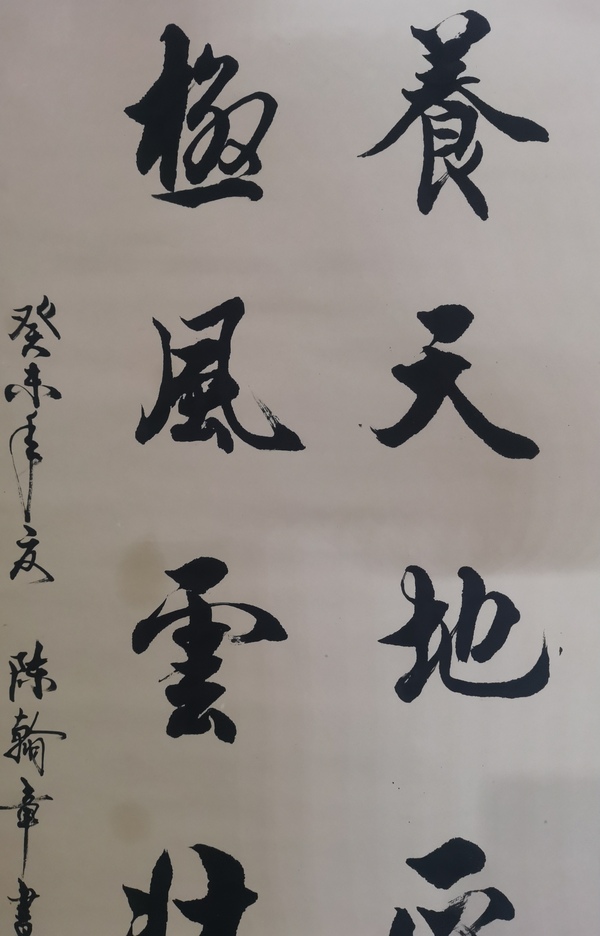 養天地正
極風雲壯
癸未年夏 陈翰章書